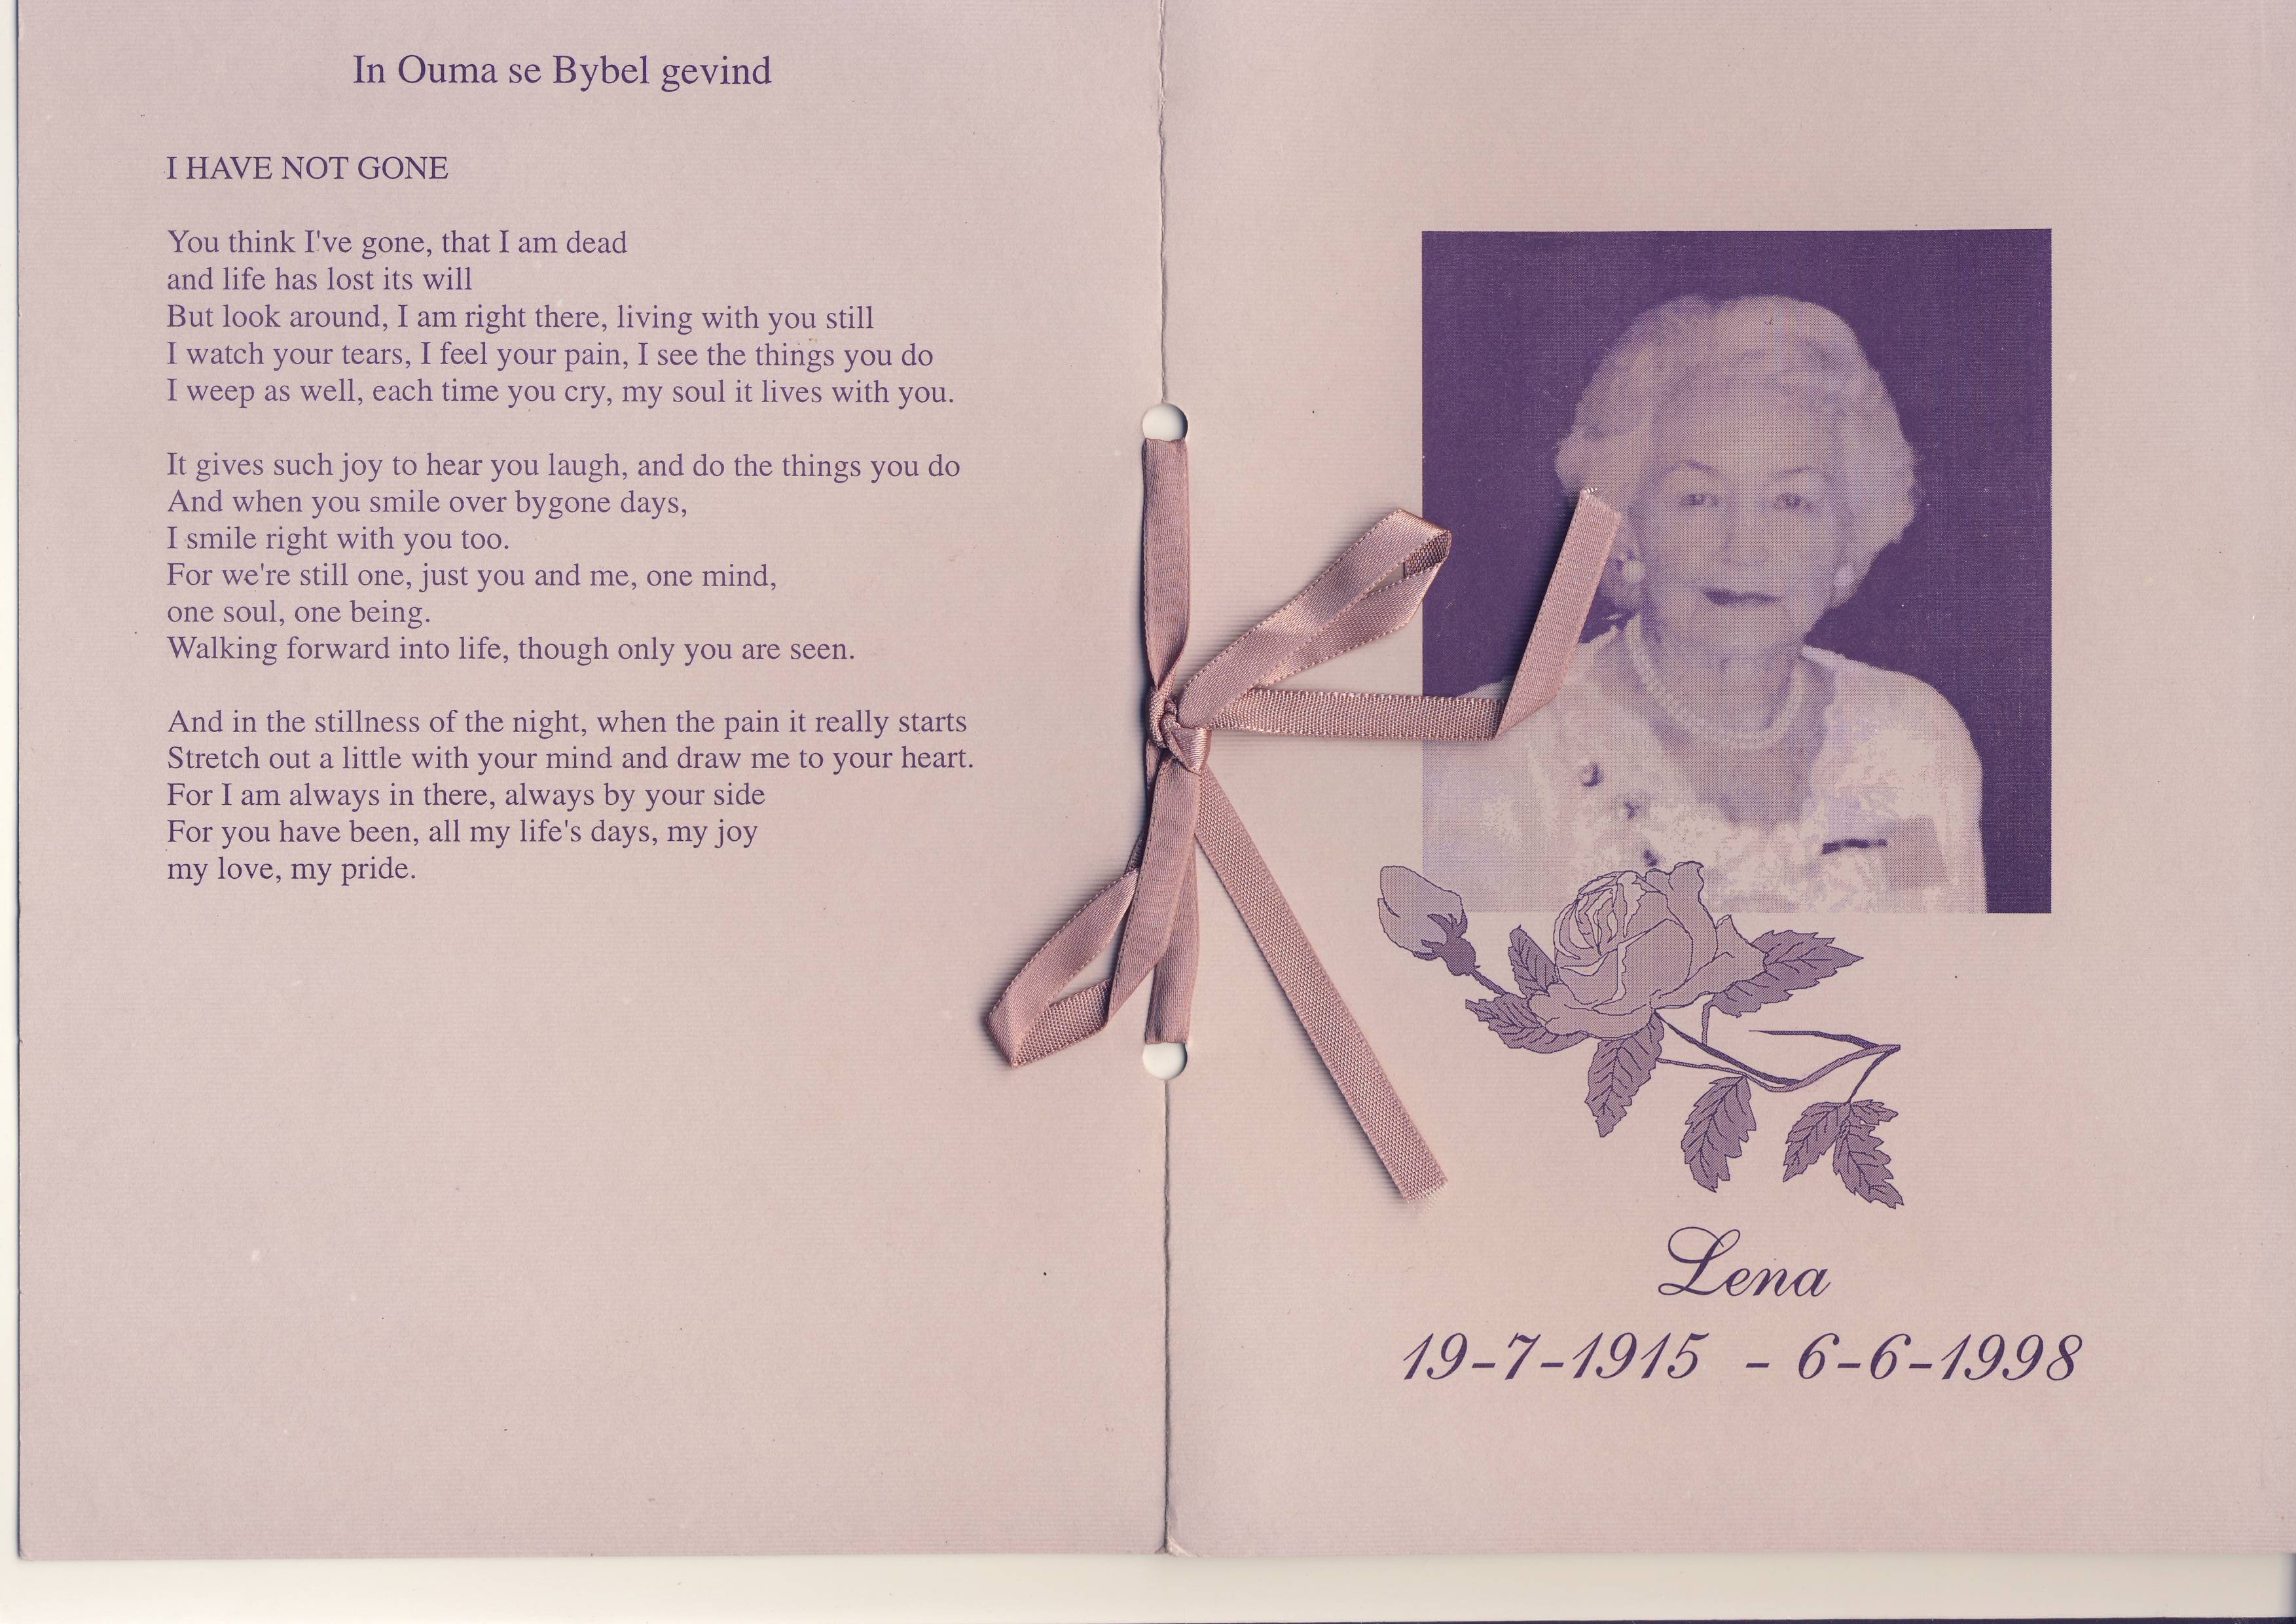 In Ouma se Bybel gevind
I HAVE NOT GONE
You think I've gone, that I am dead
and life has lost its will
But look around, I am right there, living with you still
I watch your tears, I feel your pain, I see the things you do
I weep as well, each time you cry, my soul it lives with you.
It gives such joy to hear you laugh, and do the things you do
And when you smile over bygone days,
I smile right with you too.
For we're still one, just you and me, one mind,
one soul, one being.
Walking forward into life, though only you are seen.
And in the stillness of the night, when the pain it really starts
Stretch out a little with your mind and draw me to your heart.
For I am always in there, always by your side
For you have been, all my life's days, my joy
my love, my pride.
Lena
19-7-1915 - 6-6-1998